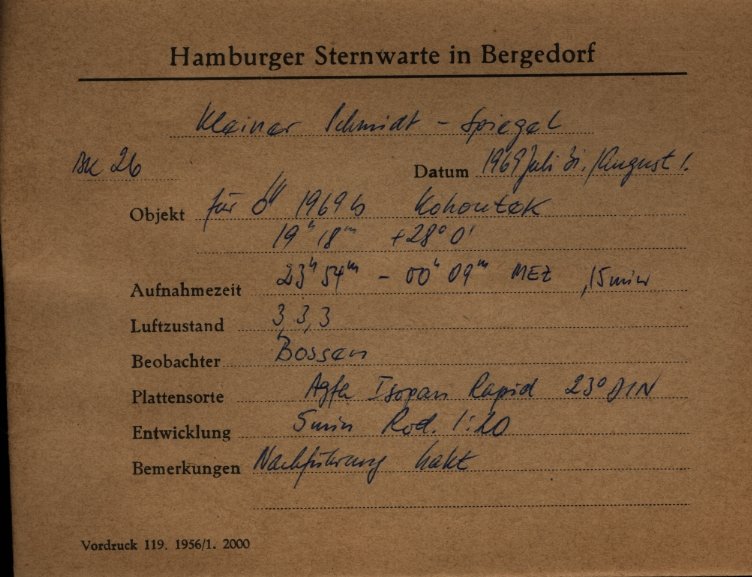 Hamburger Sternwarte in Bergedorf
Kleiner Schmidt - Spiegel
26 Datum 1969 Juli 31./August 1.
Objekt für 1969b Kohoutek
19ʰ 18ᵐ +28° 0'
Aufnahmezeit 23ʰ 54ᵐ - 00ʰ 09ᵐ MEZ , 15 min
Luftzustand 3, 3, 3
Beobachter Bossen
Plattensorte Agfa Isopan Rapid 23° DIN
Entwicklung 5 min Rod. 1:20
Bemerkungen Nachführung hakt
Vordruck 119. 1956/1. 2000